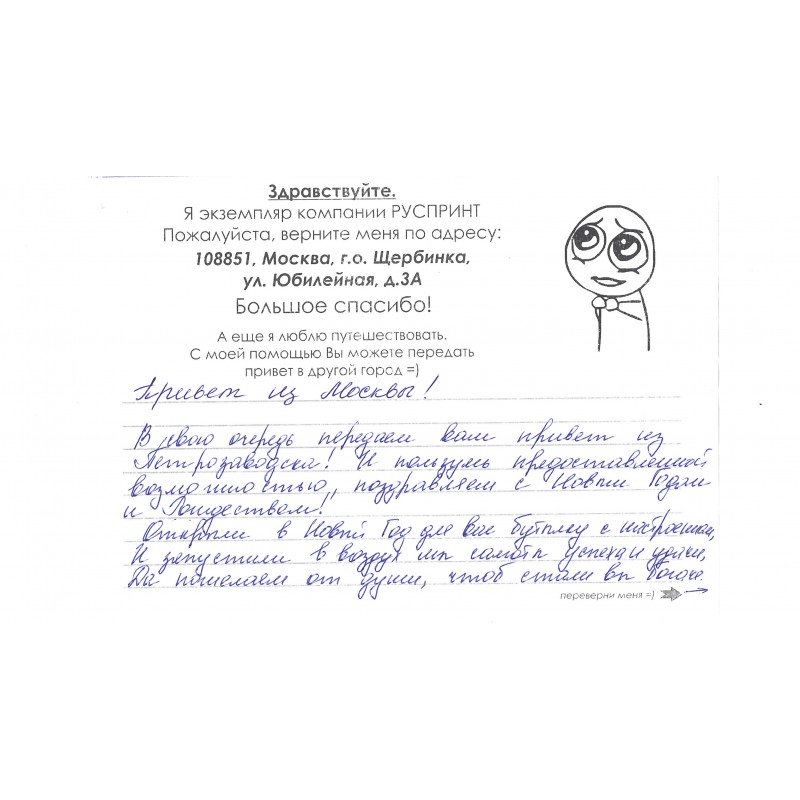 Здравствуйте.
Я экземпляр компании РУСПРИНТ
Пожалуйста, верните меня по адресу:
108851, Москва, г.о. Щербинка,
ул. Юбилейная, д.3А
Большое спасибо!
А еще я люблю путешествовать.
С моей помощью Вы можете передать
привет в другой город =)
Привет из Москвы!
В свою очередь передаем вам привет из
Петрозаводска! И пользуясь предоставленной
возможностью, поздравляем с Новым Годом
и Рождеством!
Открыли в Новый Год для вас бутылку с настроением,
И запустили в воздух мы салют успеха и удачи,
Да пожелаем от души, чтоб стали вы богаче.
переверни меня =)